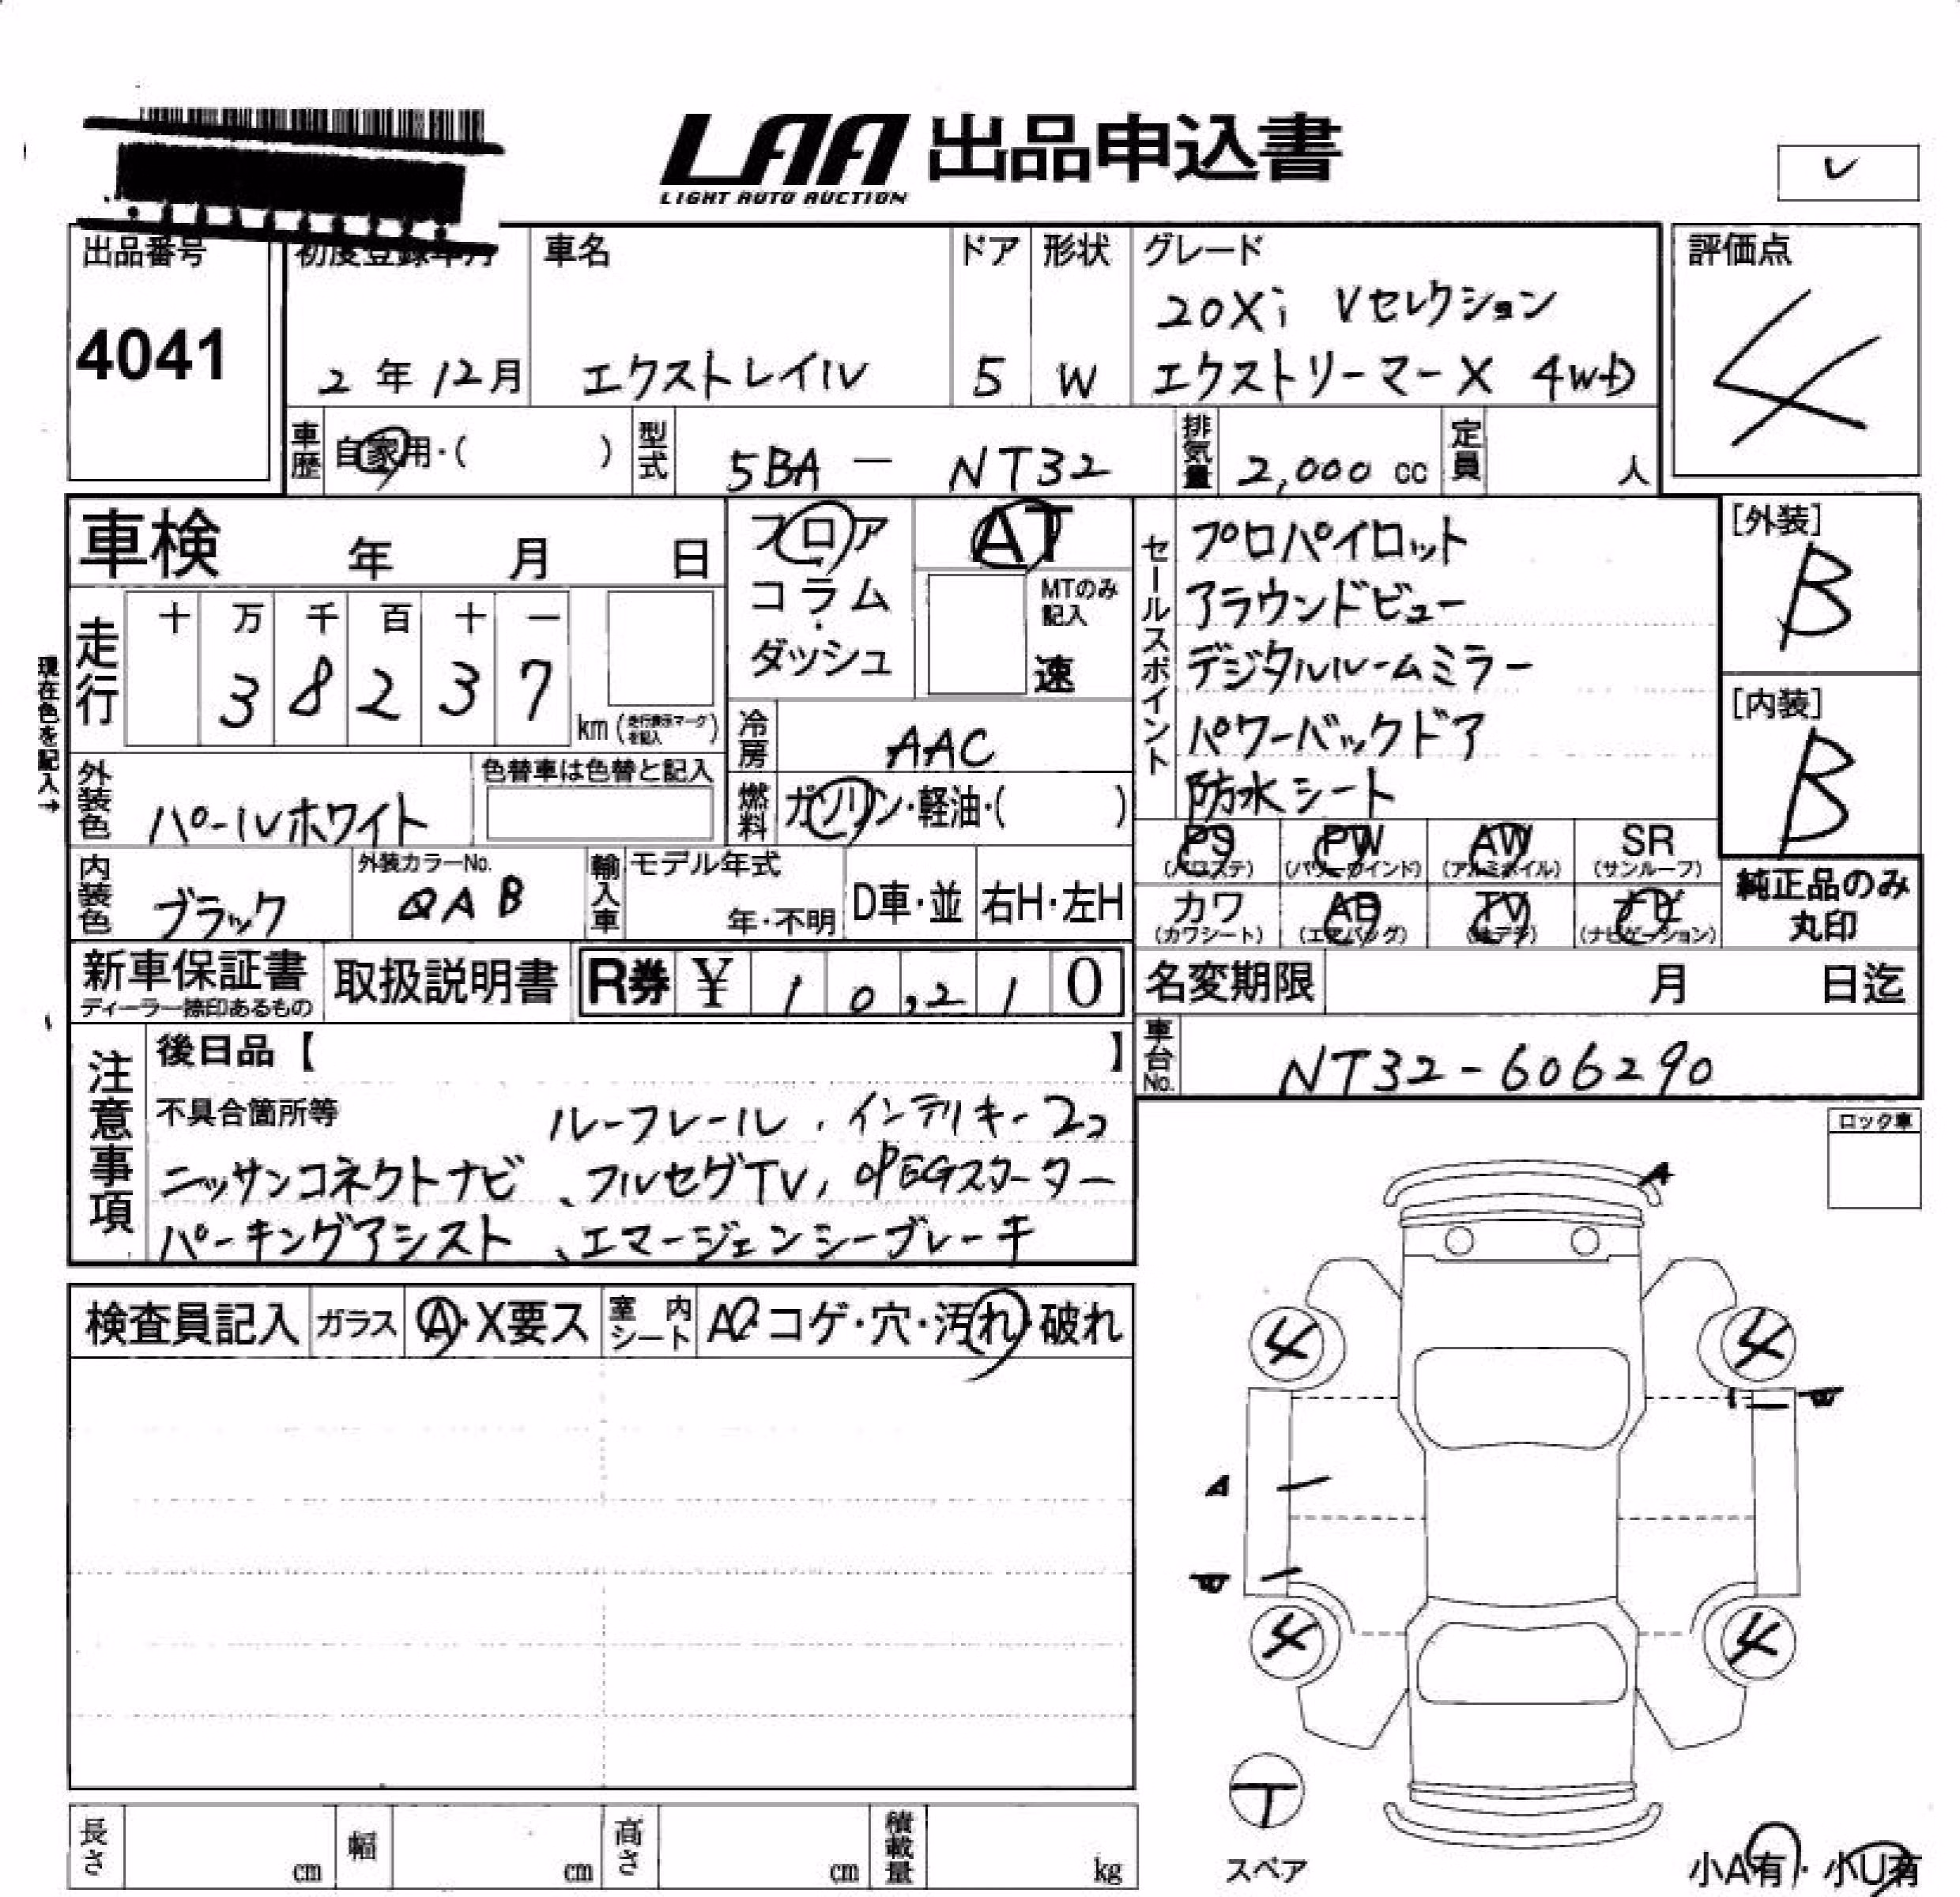 LAA 出品申込書
LIGHT AUTO AUCTION
レ
出品番号 初度登録年月 車名 ドア 形状 グレード 評価点
4041 2年12月 エクストレイル 5 W 20Xi Vセレクション 4
エクストリーマーX 4WD
車歴 自家用・( ) 型式 5BA － NT32 排気量 2,000 cc 定員 人
車検 年 月 日
フロア・コラム・ダッシュ
AT
MTのみ記入
速
セールスポイント
プロパイロット
アラウンドビュー
デジタルルームミラー
パワーバックドア
防水シート
[外装]
B
[内装]
B
現在色を記入→
走行 十 万 千 百 十 一
3 8 2 3 7
km (走行表示マークを記入)
冷房 AAC
外装色 パールホワイト 色替車は色替と記入
燃料 ガソリン・軽油・( )
PS (パワステ) PW (パワーウインド) AW (アルミホイル) SR (サンルーフ)
カワ (カワシート) AB (エアバッグ) TV ナビ (ナビゲーション)
純正品のみ
丸印
内装色 ブラック 外装カラーNo. QAB 輸入車 モデル年式 年・不明 D車・並 右H・左H
新車保証書 ディーラー捺印あるもの 取扱説明書 R券 ¥ 10,210
名変期限 月 日迄
車台No. NT32-606290
注意事項
後日品【 】
不具合箇所等 ルーフレール、インテリキー2コ
ニッサンコネクトナビ、フルセグTV、OPEGスターター
パーキングアシスト、エマージェンシーブレーキ
ロック車
検査員記入 ガラス A・X要ス 室内シート コゲ・穴・汚れ・破れ
A
4 4
W
A
W
4 4
T
スペア
長さ cm 幅 cm 高さ cm 積載量 kg
小A有・小U有